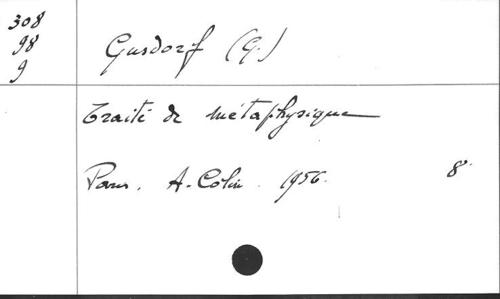 308
98
9
Gusdorf (G.)
Traité de métaphysique
Paris. A. Colin. 1956. 8°